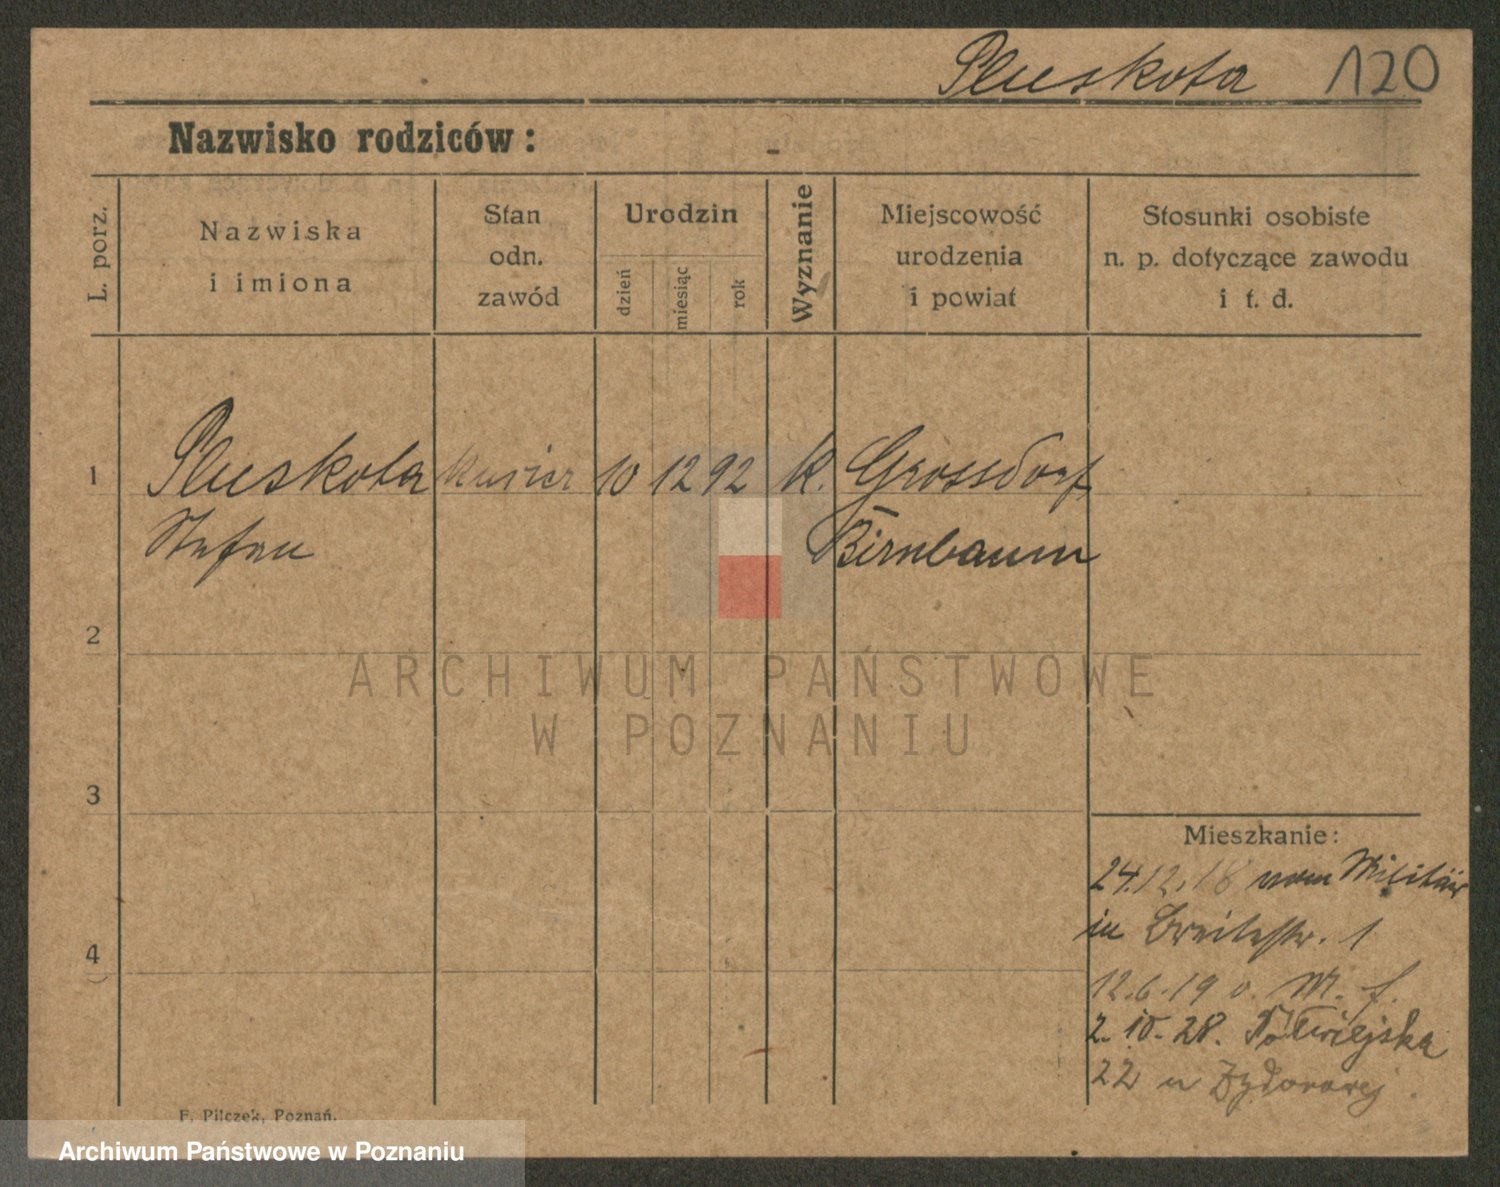 Pluskota 120
Nazwisko rodziców: -
L. porz.
Nazwiska
i imiona
Stan
odn.
zawód
Urodzin
dzień
miesiąc
rok
Wyznanie
Miejscowość
urodzenia
i powiat
Stosunki osobiste
n. p. dotyczące zawodu
i t. d.
1 Pluskota 10 12 92 k. Grossdorf
Stefan Birnbaum
2
3
4
Mieszkanie:
24.12.18 vom Militär
in Breitestr. 1
12.6.19 v. M. f.
2.10.28. Półwiejska
22 u
F. Pilczek, Poznań.
ARCHIWUM PAŃSTWOWE
W POZNANIU
Archiwum Państwowe w Poznaniu